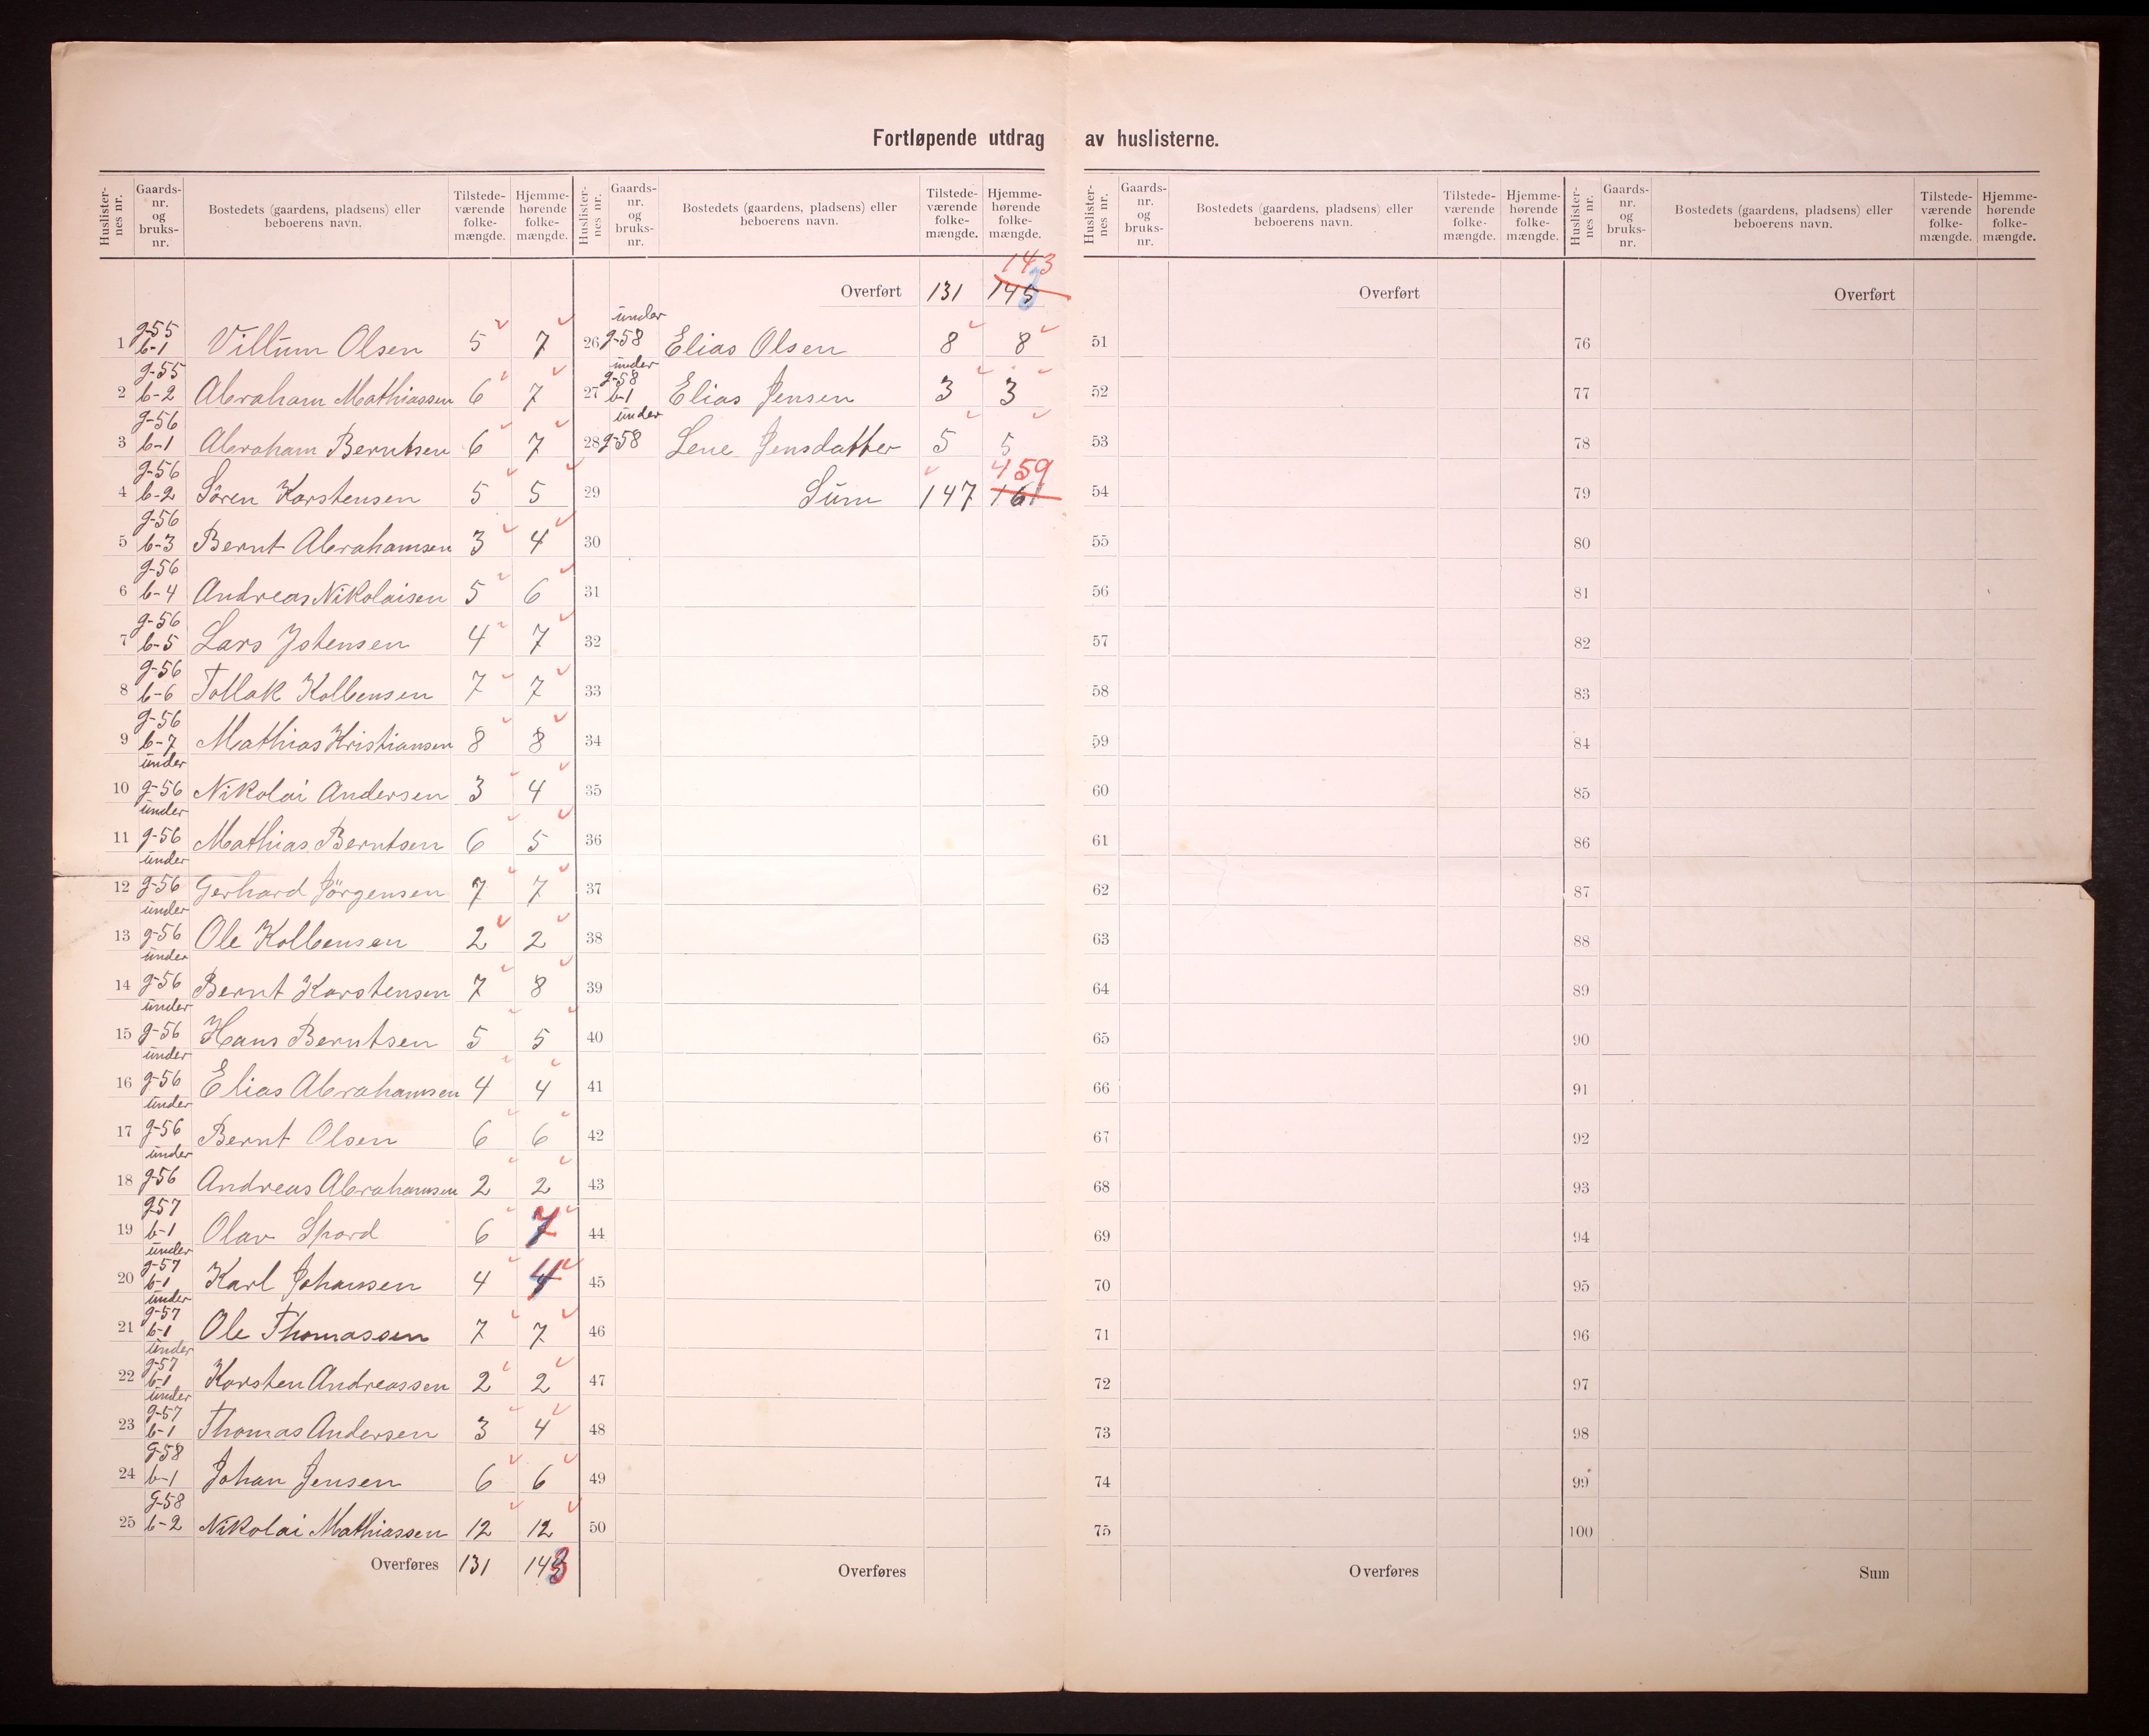 Fortløpende utdrag av huslisterne.
Huslister-nes nr. | Gaards-nr. og bruks-nr. | Bostedets (gaardens, pladsens) eller beboerens navn. | Tilstede-værende folke-mængde. | Hjemme-hørende folke-mængde.
1 g-55 b-1 Villum Olsen 5 7
2 g-55 b-2 Abraham Mathiassen 6 7
3 g-56 b-1 Abraham Berntsen 6 7
4 g-56 b-2 Sören Karstensen 5 5
5 g-56 b-3 Bernt Abrahamsen 3 4
6 g-56 b-4 Andreas Nikolaisen 5 6
7 g-56 b-5 Lars Jstensen 4 7
8 g-56 b-6 Tollak Kolbensen 7 7
9 g-56 b-7 Mathias Kristiansen 8 8
10 under g-56 Nikolai Andersen 3 4
11 under g-56 Mathias Berntsen 6 5
12 under g-56 Gerhard Jörgensen 7 7
13 under g-56 Ole Kolbensen 2 2
14 under g-56 Bernt Karstensen 7 8
15 under g-56 Hans Berntsen 5 5
16 under g-56 Elias Abrahamsen 4 4
17 under g-56 Bernt Olsen 6 6
18 under g-56 Andreas Abrahamsen 2 2
19 g57 b-1 Olav Spord 6 7
20 under g-57 b-1 Karl Johansen 4 4
21 under g-57 b-1 Ole Thomassen 7 7
22 under g-57 b-1 Karsten Andreassen 2 2
23 under g-57 b-1 Thomas Andersen 3 4
24 g-58 b-1 Johan Jensen 6 6
25 g-58 b-2 Nikolai Mathiassen 12 12
Overføres 131 143
Huslister-nes nr. | Gaards-nr. og bruks-nr. | Bostedets (gaardens, pladsens) eller beboerens navn. | Tilstede-værende folke-mængde. | Hjemme-hørende folke-mængde.
143
Overført 131 145
26 under g-58 Elias Olsen 8 8
27 under g-58 b-1 Elias Jensen 3 3
28 under g-58 Lene Jensdatter 5 5
159
29 Sum 147 161
30
31
32
33
34
35
36
37
38
39
40
41
42
43
44
45
46
47
48
49
50
Overføres
Huslister-nes nr. | Gaards-nr. og bruks-nr. | Bostedets (gaardens, pladsens) eller beboerens navn. | Tilstede-værende folke-mængde. | Hjemme-hørende folke-mængde.
Overført
51
52
53
54
55
56
57
58
59
60
61
62
63
64
65
66
67
68
69
70
71
72
73
74
75
Overføres
Huslister-nes nr. | Gaards-nr. og bruks-nr. | Bostedets (gaardens, pladsens) eller beboerens navn. | Tilstede-værende folke-mængde. | Hjemme-hørende folke-mængde.
Overført
76
77
78
79
80
81
82
83
84
85
86
87
88
89
90
91
92
93
94
95
96
97
98
99
100
Sum